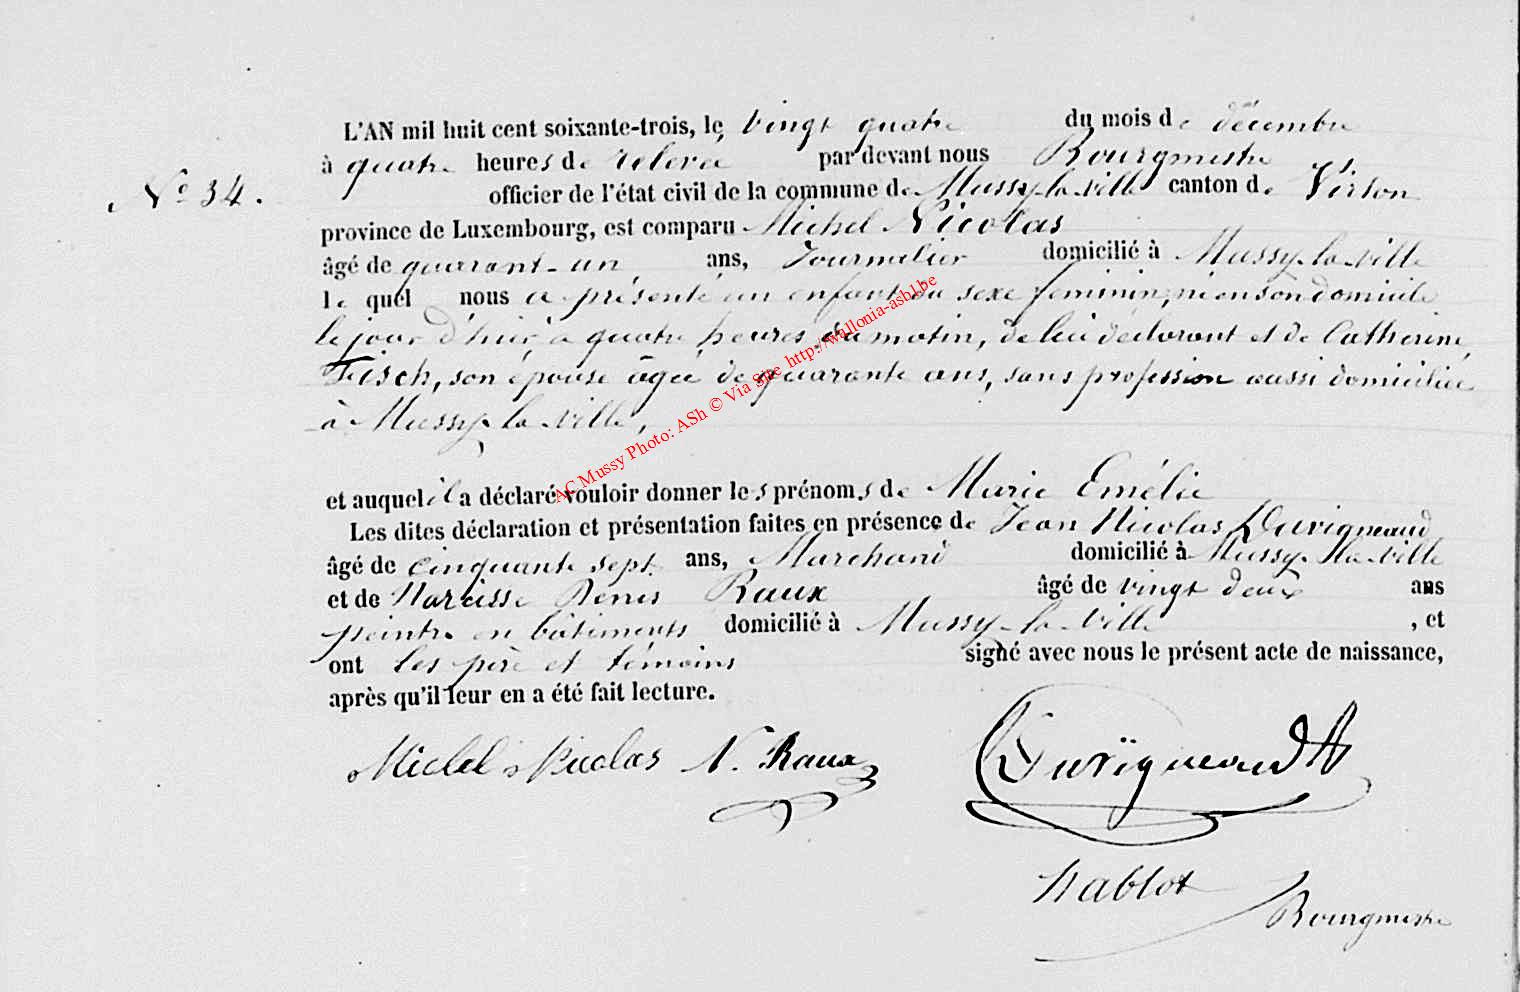 L'AN mil huit cent soixante-trois, le vingt quatre du mois de décembre
à quatre heures de relevée par devant nous Bourgmestre
N° 34.
officier de l'état civil de la commune de Mussy-la-ville canton de Virton
province de Luxembourg, est comparu Michel Nicolas
âgé de quarant-un ans, Journalier domicilié à Mussy-la-ville
le quel nous a présenté un enfant du sexe féminin, né en son domicile
le jour d'hier à quatre heures du matin, de lui déclarant et de Catherine
Fisch, son épouse âgée de quarante ans, sans profession aussi domiciliée
à Mussy-la-ville,
et auquel il a déclaré vouloir donner les prénoms de Marie Emélie
Les dites déclaration et présentation faites en présence de Jean Nicolas Duvigneaud
âgé de cinquante sept ans, Marchand domicilié à Mussy-la-ville
et de Narcisse Denis Raux âgé de vingt deux ans
peintre en bâtiments domicilié à Mussy-la-ville, et
ont les père et témoins signé avec nous le présent acte de naissance,
après qu'il leur en a été fait lecture.
Michel Nicolas N. Raux Duvigneaud
Nablot
Bourgmestre
AC Mussy Photo: ASh © Via Site http://wallonia-asbl.be